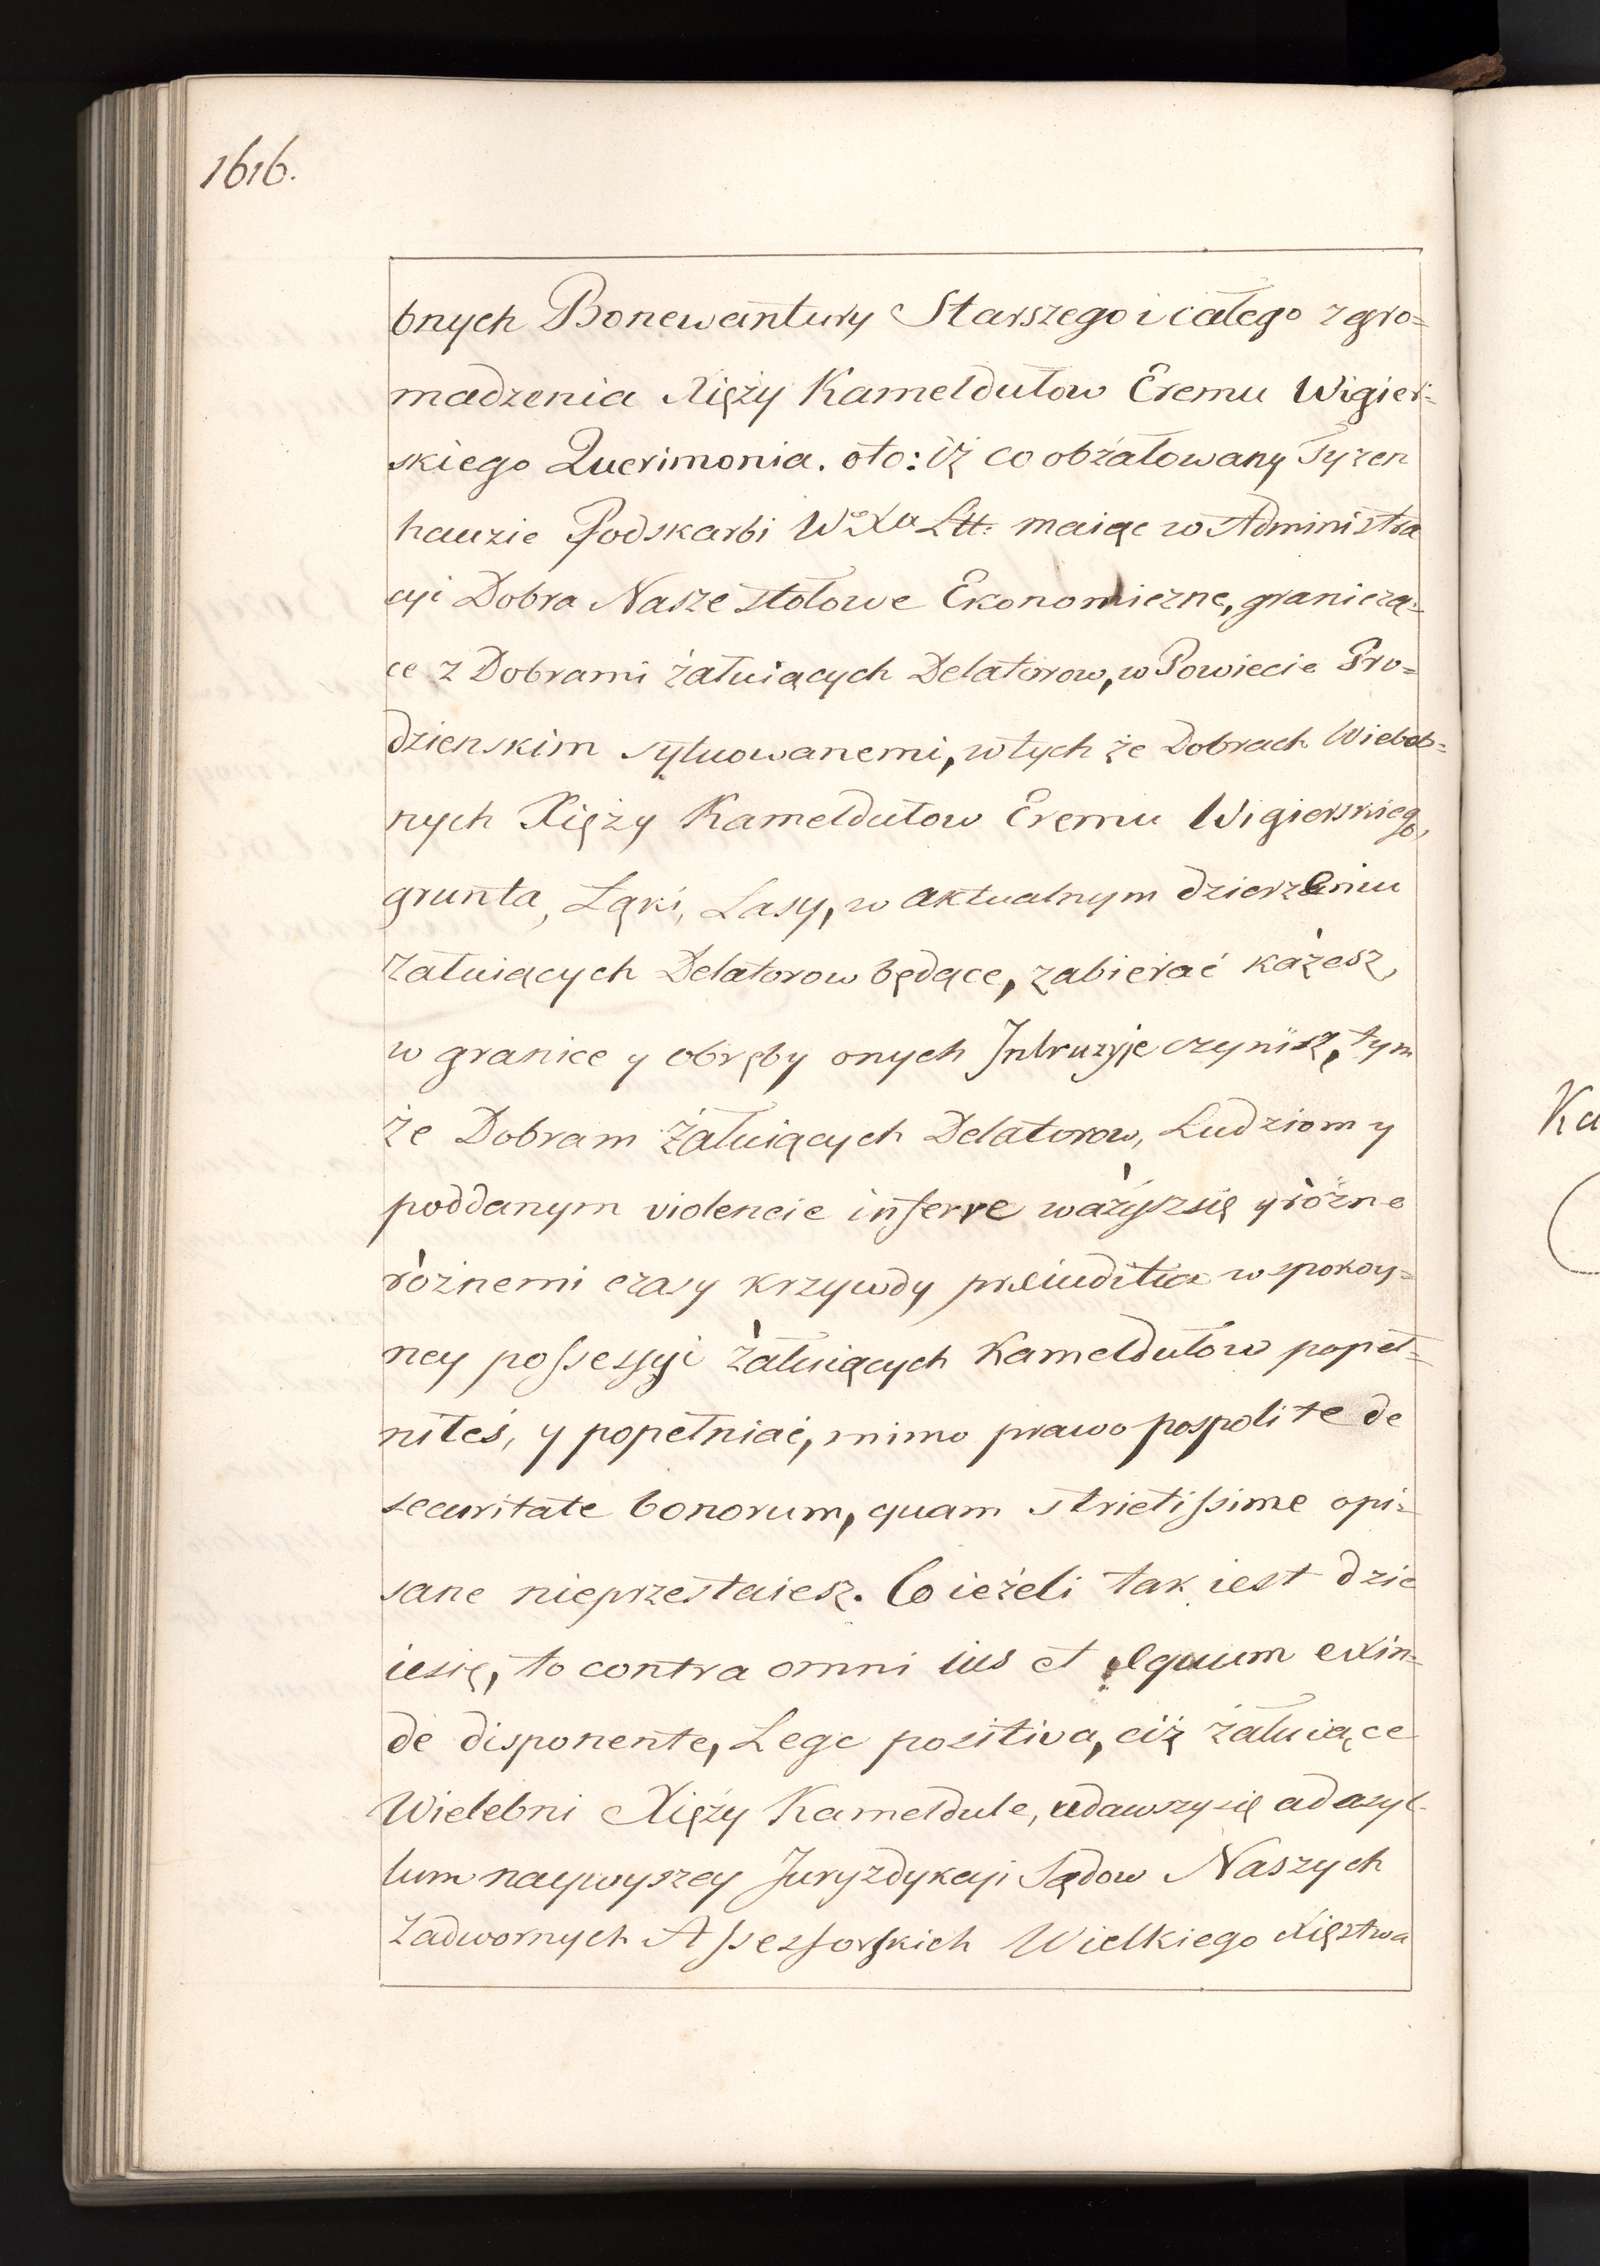 1616.
bnych Bonewantury Starszego i całego zgro=
madzenia Xięży Kameldułow Eremu Wigier=
skiego Querimonia. oto: iż co obżałowany Tyzen
hauzie Podskarbi W° Xa Litt: maiąc w Administra
cyi Dobra Nasze stołowe Ekonomiczne, graniczą=
ce z Dobrami żałuiących Delatorow, w Powiecie Gro=
dzienskim sytuowanemi, w tych że Dobrach Wieleb=
nych Xięży Kameldułow Eremu Wigierskiego,
grunta, Łąki, Lasy, w aktualnym dzierzeniu
żałuiących Delatorow będące, zabierać każesz,
w granice y obręby onych Intruzyje czynisz, tym
że Dobram żałuiących Delatorow, Ludziom y
poddanym violencie inferre ważysz się y różne
różnemi czasy krzywdy preiuditia w spokoy=
ney possessyi żałuiących Kameldułow popeł=
niłeś, y popełniać, mimo prawo pospolite de
securitate bonorum, quam strictissime opi=
sane nieprzestaiesz. Co ieżeli tak iest dzie
ie się, to contra omni ius et equum exin=
de disponente, Lege pozitiva, ciż żałuiące
Wielebni Xięży Kameldule, udawszy się ad asyl=
lum naywyszey Juryzdykcyi Sądow Naszych
Zadwornych Assessorskich Wielkiego Xięstwa
Ka